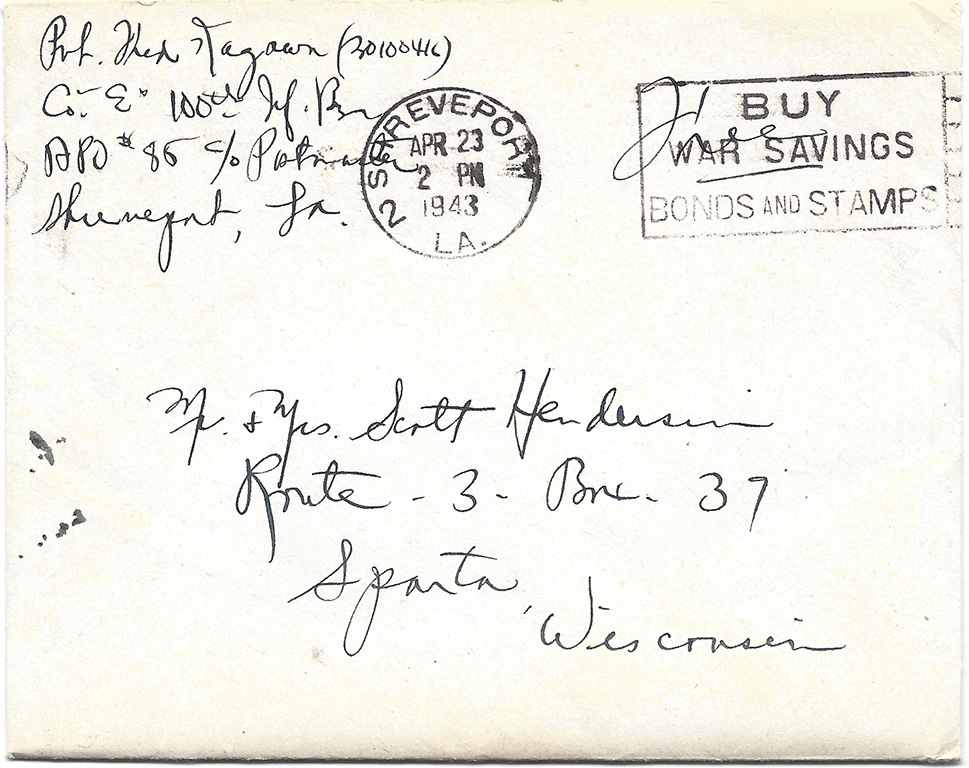 Pvt. Fred Kagawa (30100416)
Co. "E" 100th Inf. Bn
APO #85 c/o Postmaster
Shreveport, La.
SHREVEPORT
APR 23
2 PM
1943
2
LA.
Free
BUY
WAR SAVINGS
BONDS AND STAMPS
Mr. + Mrs. Scott Henderson
Route - 3 - Box - 37
Sparta, Wisconsin